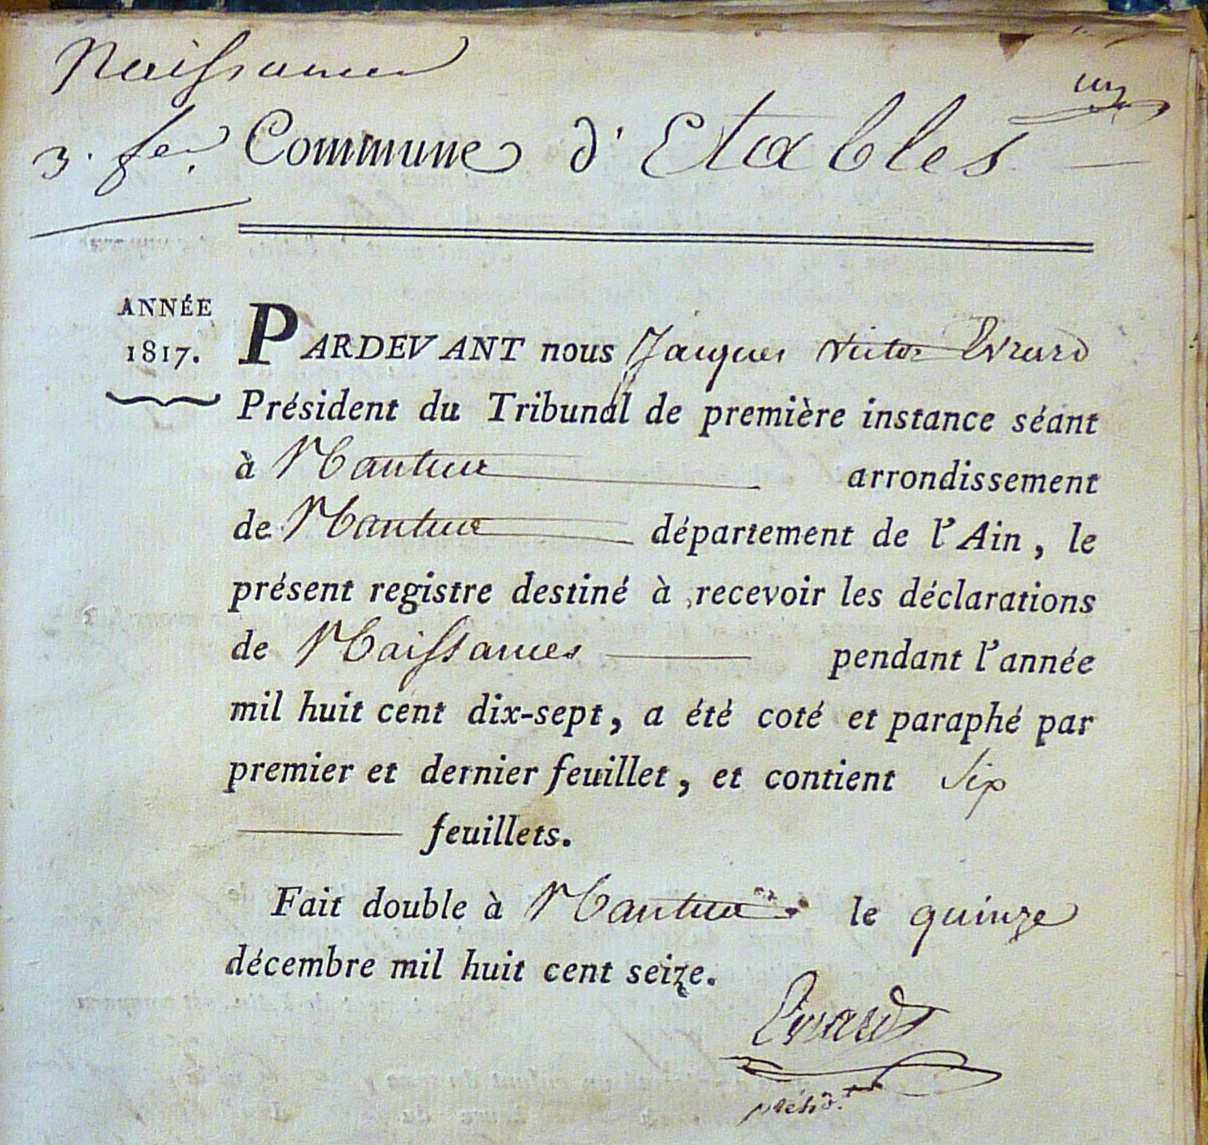 Naissances
un
3. fer. Commune d'Etables
ANNÉE
1817.
PARDEVANT nous Jacques Victor Evrard
Président du Tribunal de première instance séant
à Nantua arrondissement
de Nantua département de l'Ain, le
présent registre destiné à recevoir les déclarations
de Naissances pendant l'année
mil huit cent dix-sept, a été coté et paraphé par
premier et dernier feuillet, et contient Six
feuillets.
Fait double à Nantua le quinze
décembre mil huit cent seize.
Evrard
présdt.